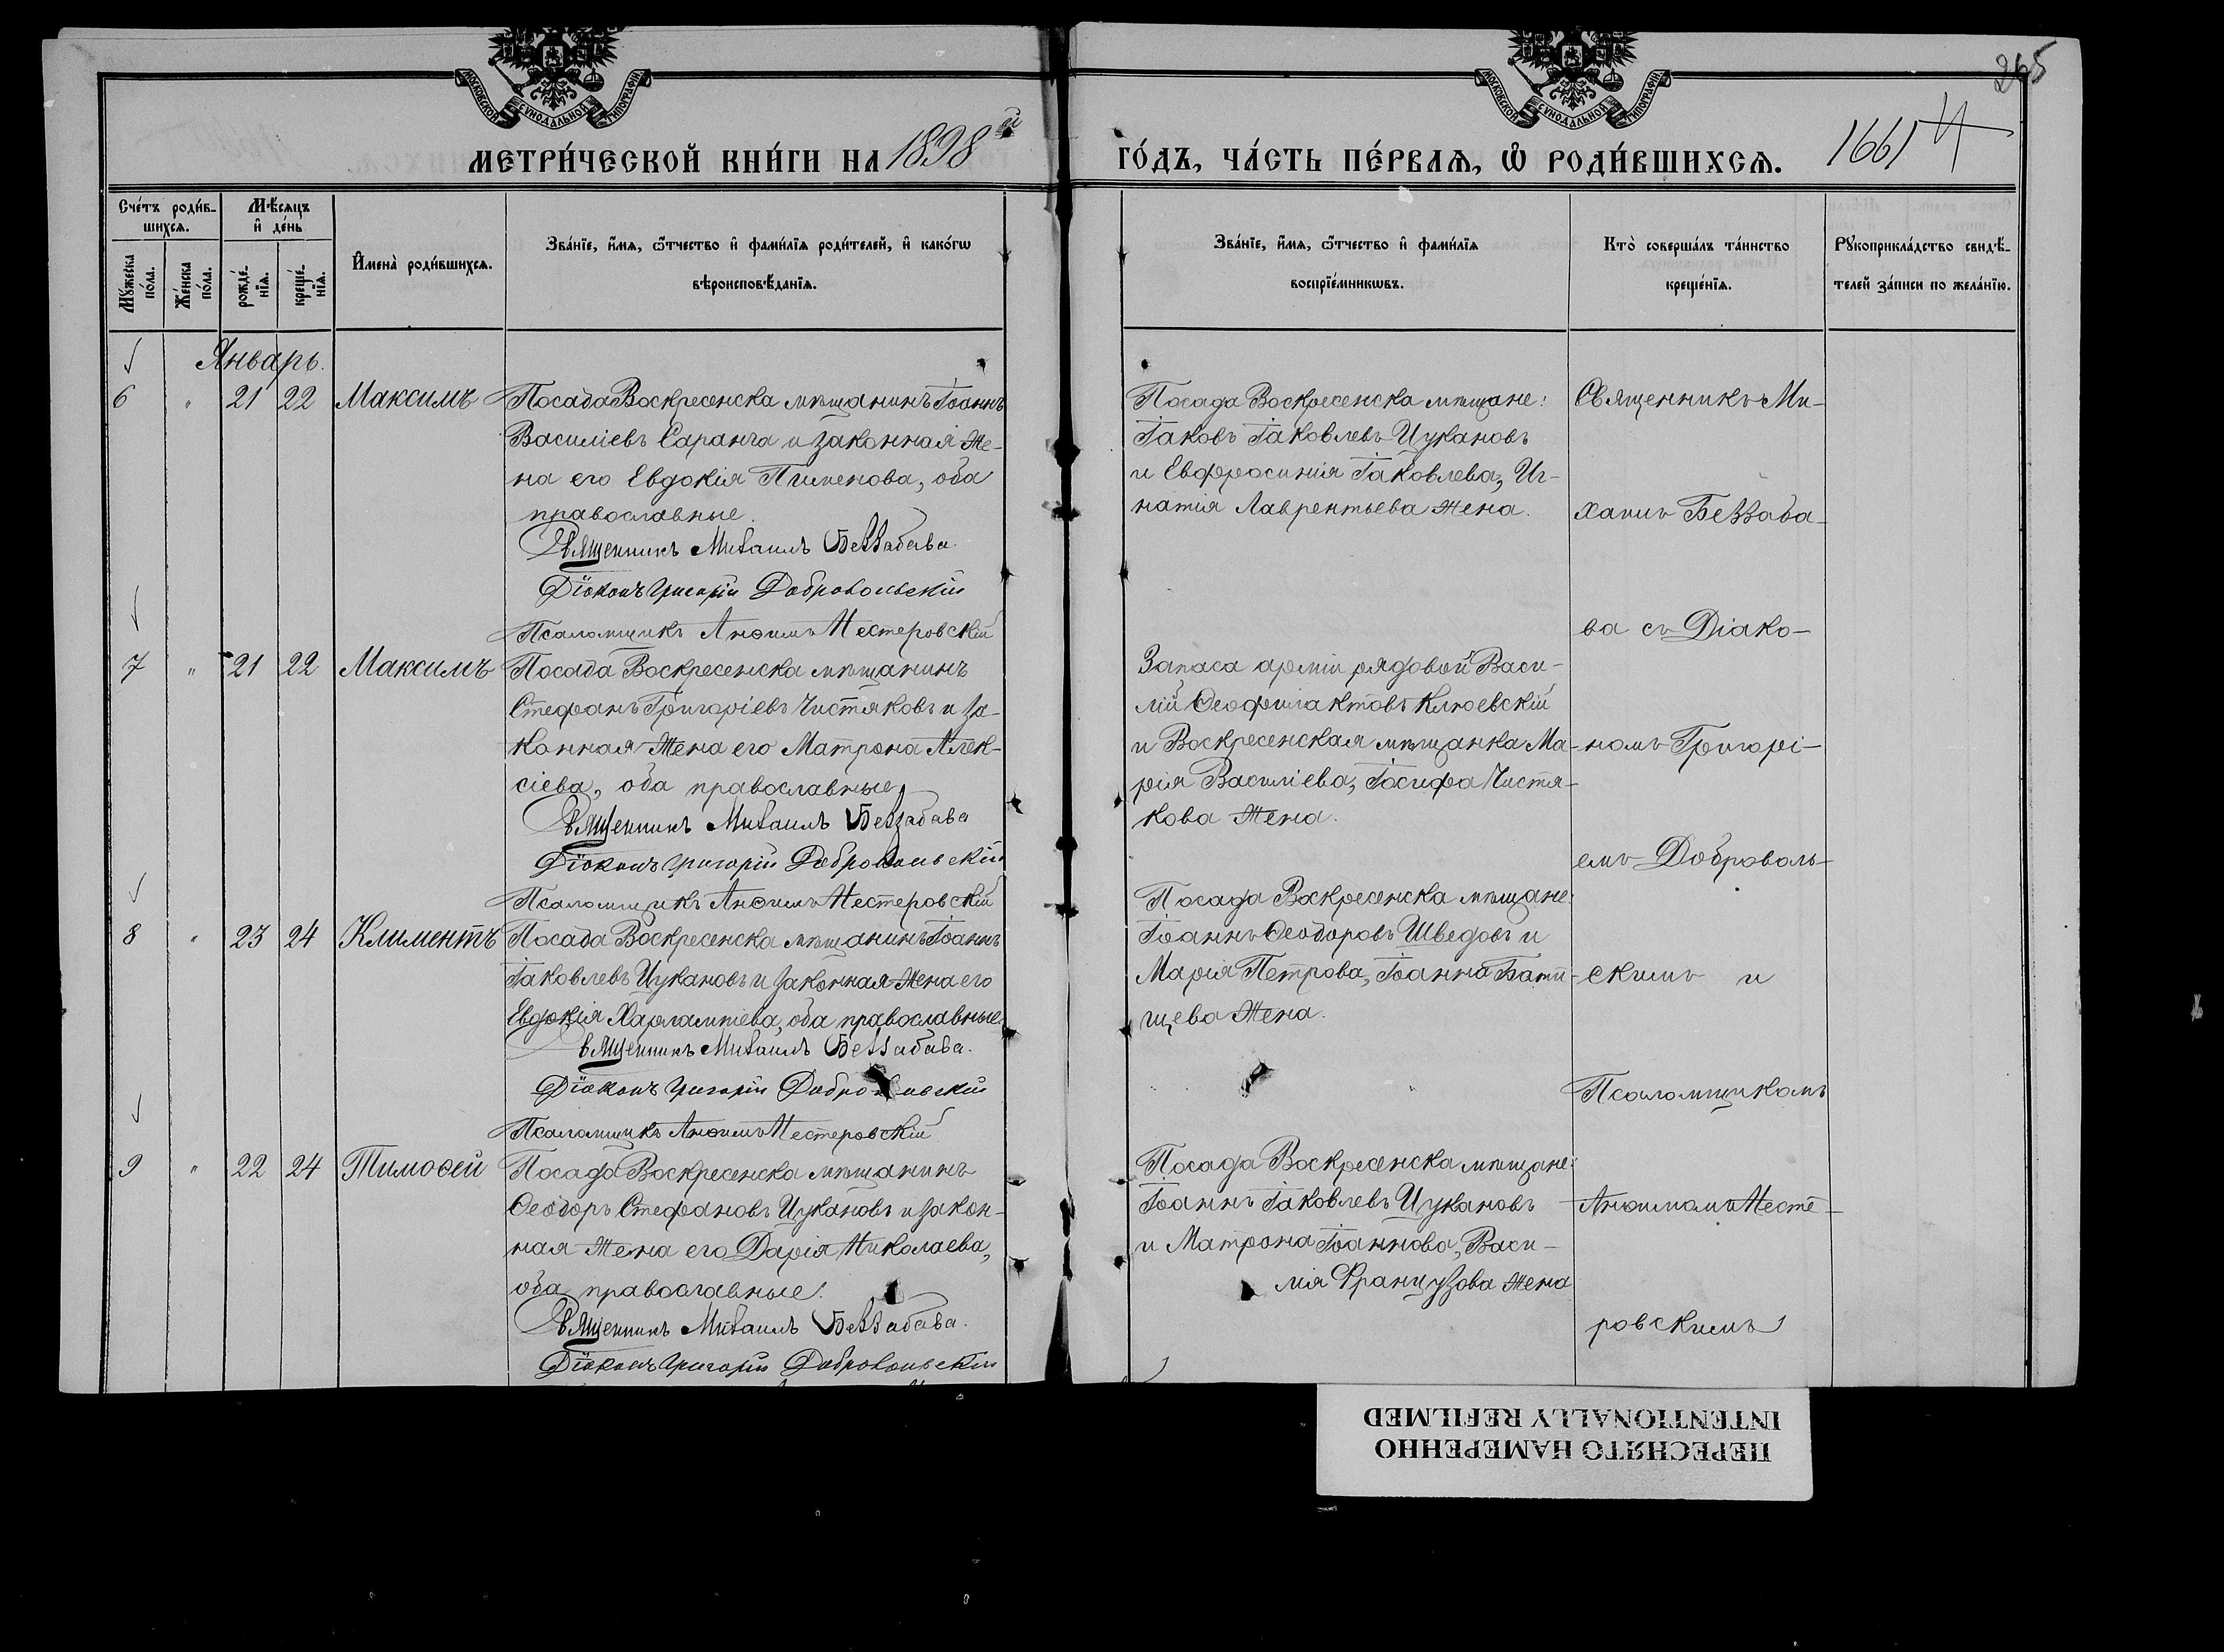 МОСКОВСКОЙ СѴНОДАЛЬНОЙ ТИПОГРАФІИ
МОСКОВСКОЙ СѴНОДАЛЬНОЙ ТИПОГРАФІИ
265
МЕТРИ́ЧЕСКОЙ КНИ́ГИ НА 1898 й
ГО́ДЪ, ЧА́СТЬ ПЕ́РВАѦ, Ѡ҆ РОДИ́ВШИХСѦ.
1661 Ч
Сче́тъ роди́в-
шихсѧ.
Мꙋ́жеска по́ла.
Же́нска по́ла.
Мѣ́сѧцъ
и҆ де́нь
рожде́-
нїѧ.
креще́-
нїѧ.
И҆мена̀ роди́вшихсѧ.
Зва́нїе, и҆́мѧ, ѻ҆́тчество и҆ фами́лїѧ роди́телей, и҆ како́гѡ
вѣроисповѣ́данїѧ.
Зва́нїе, и҆́мѧ, ѻ҆́тчество и҆ фами́лїѧ
воспрїе́мникѡвъ.
Кто̀ соверша́лъ та́инство
креще́нїѧ.
Рꙋкоприкла́дство свидѣ́-
телей за́писи по жела́нїю.
Январь.
6 " 21 22 Максимъ
Посада Воскресенска мѣщанинъ Іоаннъ
Василіевъ Саранча и законная же-
на его Евдокія Пименова, оба
православные.
Священникъ Михаилъ Беззабава
Діаконъ Григорій Добровольскій
Псаломщикъ Анѳимъ Нестеровскій
Посада Воскресенска мѣщане:
Іаковъ Іаковлевъ Цукановъ
и Евфросинія Іаковлева, Иг-
натія Лаврентьева жена.
7 " 21 22 Максимъ
Посада Воскресенска мѣщанинъ
Стефанъ Григоріевъ Чистяковъ и за-
конная жена его Матрона Алек-
сіева, оба православные
Священникъ Михаилъ Беззабава
Діаконъ Григорій Добровольскій
Псаломщикъ Анѳимъ Нестеровскій
Запаса арміи рядовой Васи-
лій Ѳеофилактовъ Клюевскій
и Воскресенская мѣщанка Ма-
рія Василіева, Іосифа Чистя-
кова жена.
8 " 23 24 Климентъ
Посада Воскресенска мѣщанинъ Іоаннъ
Іаковлевъ Цукановъ и законная жена его
Евдокія Харлампіева, оба православные.
Священникъ Михаилъ Беззабава.
Діаконъ Григорій Добровольскій
Псаломщикъ Анѳимъ Нестеровскій
Посада Воскресенска мѣщане:
Іоаннъ Ѳеодоровъ Шведовъ и
Марія Петрова, Іоанна Бати-
щева жена.
9 " 22 24 Тимоѳей
Посада Воскресенска мѣщанинъ
Ѳеодоръ Стефановъ Цукановъ и закон-
ная жена его Дарія Николаева,
оба православные.
Священникъ Михаилъ Беззабава.
Діаконъ Григорій Добровольскій
Посада Воскресенска мѣщане:
Іоаннъ Іаковлевъ Цукановъ
и Матрона Іоаннова, Васи-
лія Французова жена
Священникъ Ми-
хаилъ Беззаба-
ва съ Діако-
номъ Григорі-
емъ Доброволь-
скимъ и
Псаломщикомъ
Анѳимомъ Несте-
ровскимъ
ПЕРЕСНЯТО НАМЕРЕННО
INTENTIONALLY REFILMED